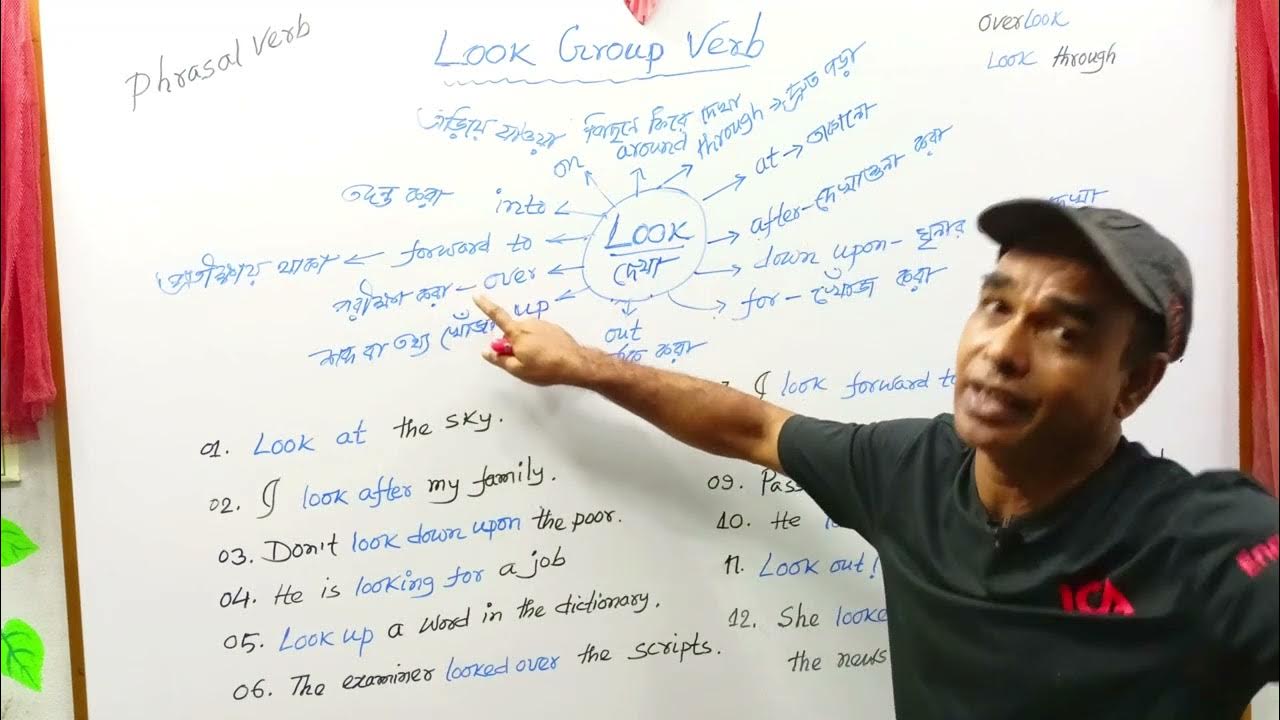 Phrasal Verb
Look Group Verb
Overlook
Look through
এড়িয়ে যাওয়া
on
পিছনে ফিরে দেখা
around
through → দ্রুত পড়া
at → তাকানো
তদন্ত করা
into
after - দেখাশুনা করা
Look
দেখা
প্রতীক্ষায় থাকা ← forward to
down upon - ঘৃনার
দেখা
পরীক্ষা করা - over
for - খোঁজ করা
শব্দ বা তথ্য খোঁজা
up
out
করা
I look forward to
01. Look at the sky.
02. I look after my family.
03. Don't look down upon the poor.
04. He is looking for a job
05. Look up a word in the dictionary.
06. The examiner looked over the scripts.
09. Pass
10. He
11. Look out!
12. She looked
the news
ICA